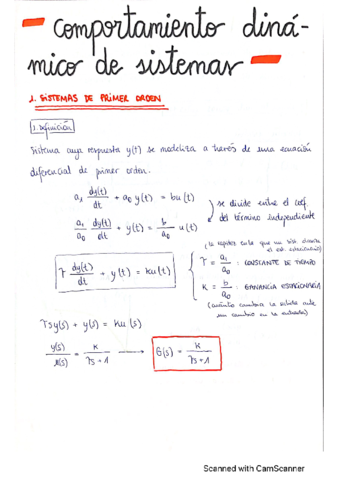 comportamiento diná-
mico de sistemas
1. SISTEMAS DE PRIMER ORDEN
1. Definición
Sistema cuya respuesta y(t) se modeliza a través de una ecuación
diferencial de primer orden.
a₁ dy(t)/dt + a₀ y(t) = bu(t)
se divide entre el coef.
del término independiente
a₁/a₀ dy(t)/dt + y(t) = b/a₀ u(t)
(lo rápido que un sist. alcanza
el est. estacionario)
τ dy(t)/dt + y(t) = Ku(t)
τ = a₁/a₀ : CONSTANTE DE TIEMPO
K = b/a₀ : GANANCIA ESTACIONARIA
(cuánto cambia la salida ante
un cambio en la entrada)
τsy(s) + y(s) = Ku(s)
y(s)/u(s) = K/τs+1 → G(s) = K/τs+1
Scanned with CamScanner